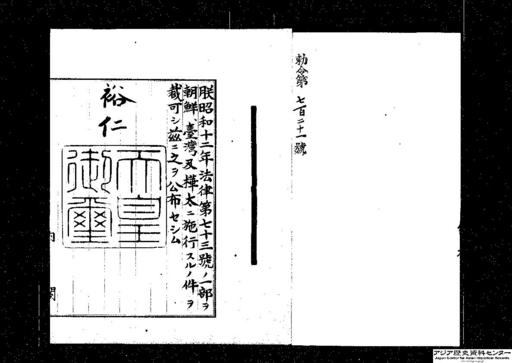 勅令第七百二十一號
朕昭和十二年法律第七十三號ノ一部ヲ
朝鮮、臺灣及樺太ニ施行スルノ件ヲ
裁可シ茲ニ之ヲ公布セシム
裕仁
天皇
御璽
内閣
アジア歴史資料センター
Japan Center for Asian Historical Records